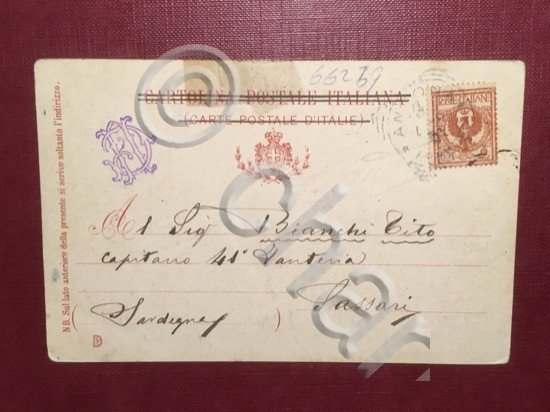 66239
CARTOLINA POSTALE ITALIANA
(CARTE POSTALE D'ITALIE)
POSTE ITALIANE
N B. Sul lato anteriore della presente si scrive soltanto l'indirizzo.
Al Sig Bianchi Tito
capitano 41° Fanteria
Sassari
(Sardegna)